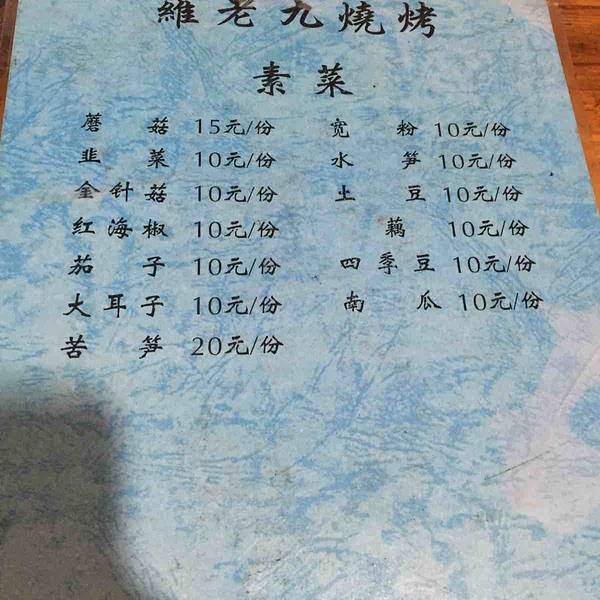 維老九燒烤
素菜
蘑菇 15元/份 宽粉 10元/份
韭菜 10元/份 水笋 10元/份
金针菇 10元/份 土豆 10元/份
红海椒 10元/份 藕 10元/份
茄子 10元/份 四季豆 10元/份
大耳子 10元/份 南瓜 10元/份
苦笋 20元/份